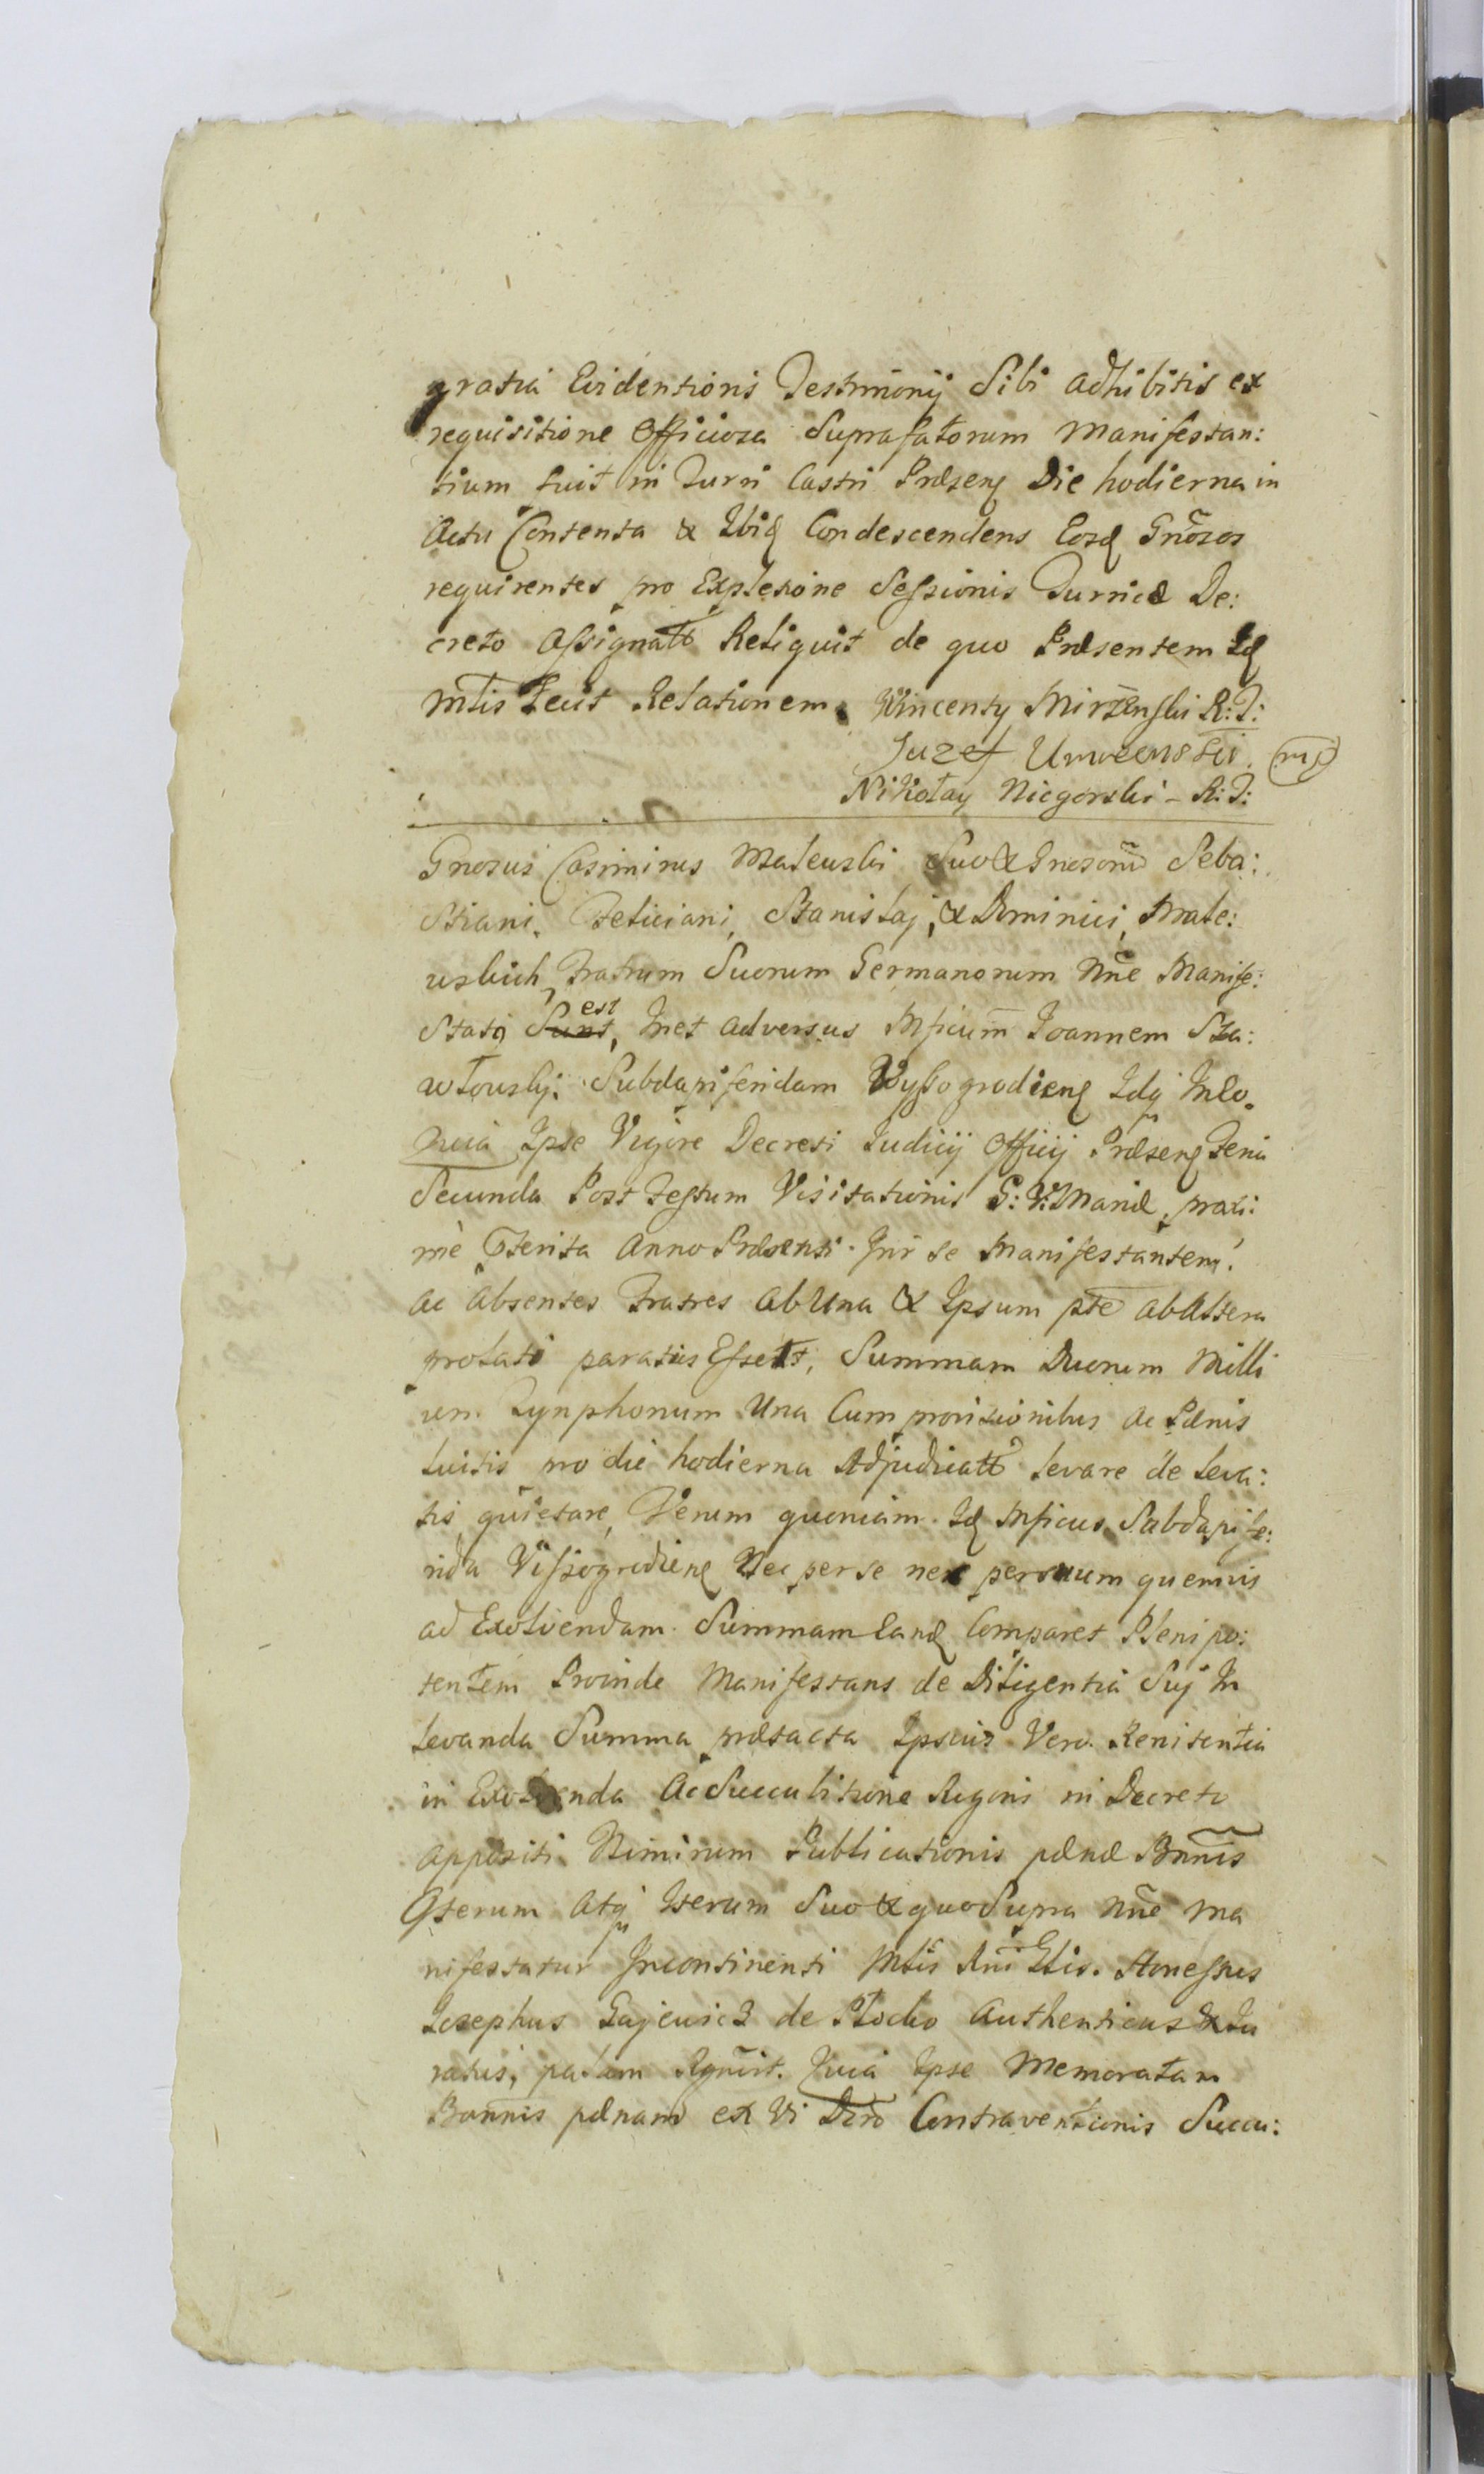 gratia Evidentioris Testimonij Sibi adhibitis ex
requisitione Officiosa Suprafatorum Manifestan:
tium fuit in Turri Castri Præsenq Die hodierna in
Actu Contenta & Ibiq Condescendens Eosq Gnosos
requirentes pro Expletione Sessionis Turriæ De:
creto Assignatt Reliquit de quo Præsentem Idq
Mtis Fecit Relationem. Wincenty Mirzenski R: T:
Juzef
Nikołay Niegorski - R: T:
Gnosus Casimirus Mateuski Suo & Gnosorum Seba:
Stiani, Feliciani, Stanislaj, & Dominici, Mate:
uskich Fratrum Suorum Germanorum Nne Manife:
Stats Sunt est, Met adversus Mficum Joannem Sza:
włouskj Subdapiferidam Wyssogrodienq Idq In Eo.
Quia Ipse Vigore Decreti Judicij Officij Præsenq Feria
Secunda Post Festum Visitationis G: V: Mariæ, proxi:
mè Pterita Anno Præsenti Intr Se Manifestantem
ac absentes Fratres ab Una & Ipsum pte ab Altera
prolati paratus Esset, Summam Duorum Milli
um Tynphonum Una Cum provisionibus ac Pænis
luitis pro die hodierna Adjudicatt levare de leva:
tis quietare, Verum quoniam Idq Mficus Subdapife:
rida Vissogrodienq Nec per se nec per suum quemvis
ad Exolvendam Summam Eanq Comparet Plenipo:
tentem Proinde Manifestans de Diligentia Sui In
levanda Summa prætacta Ipsius Vero Renitentia
in Exolvenda Ac Succubitione Rigoris in Decreto
appositi Nimirum Publicationis pænæ Bannis
Iterum Atq Iterum Suo & quo Supra Nne Ma
nifestatur Incontinenti Mtis Rni Gtis. Honestus
Josephus Gajewicz de Plocko Authenticus & Ju
ratus, palam Agnvit. Quia Ipse Memoratam
Bannis pænam ex Vi Dcro Contraventionis Succu: